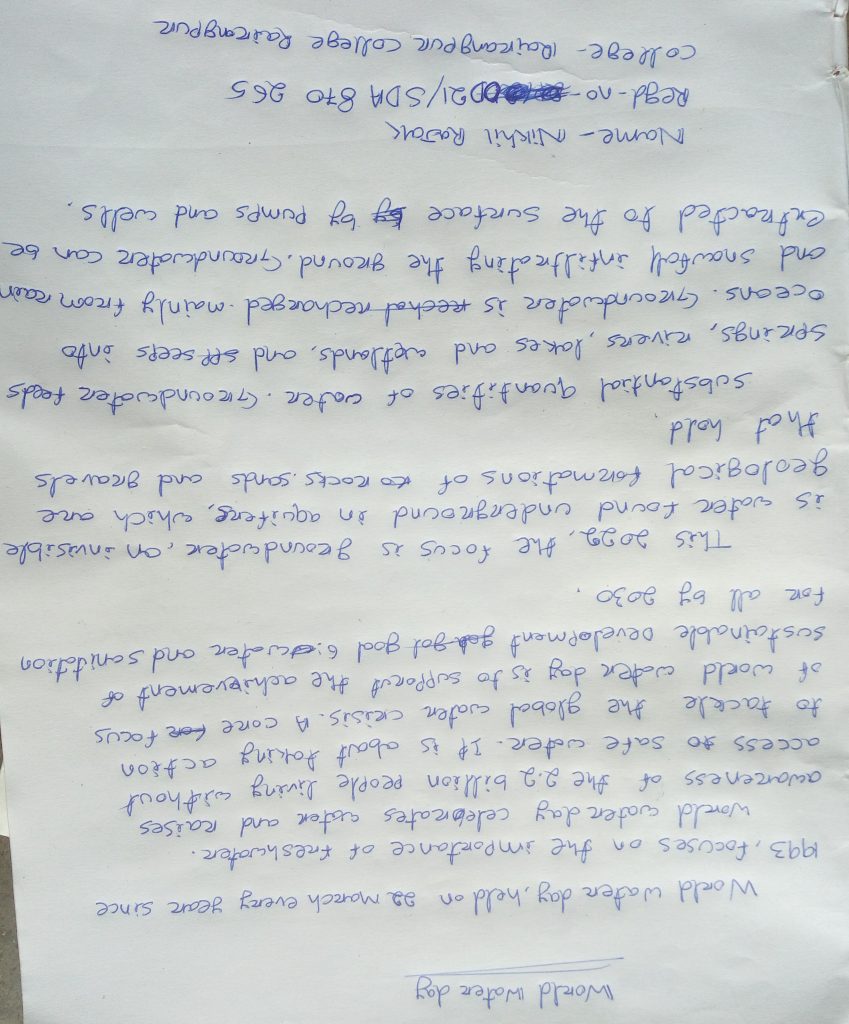 World water day
World water day, held on 22 March every year since
1993, focuses on the importance of freshwater.
World water day celebrates water and raises
awareness of the 2.2 billion people living without
access to safe water. It is about taking action
to tackle the global water crisis. A core focus
of world water day is to support the achievement of
sustainable Development goal 6: water and sanitation
for all by 2030.
This 2022, the focus is groundwater, an invisible
is water found underground in aquifers, which are
geological formations of rocks, sands and gravels
that hold.
substantial quantities of water. Groundwater feeds
springs, rivers, lakes and wetlands, and seeps into
oceans. Groundwater is recharged mainly from rain
and snowfall infiltrating the ground. Groundwater can be
extracted to the surface by pumps and wells.
Name - Nikhil Rajak
Regd-no- D21/SDA 870 265
College - Rairangpur College Rairangpur